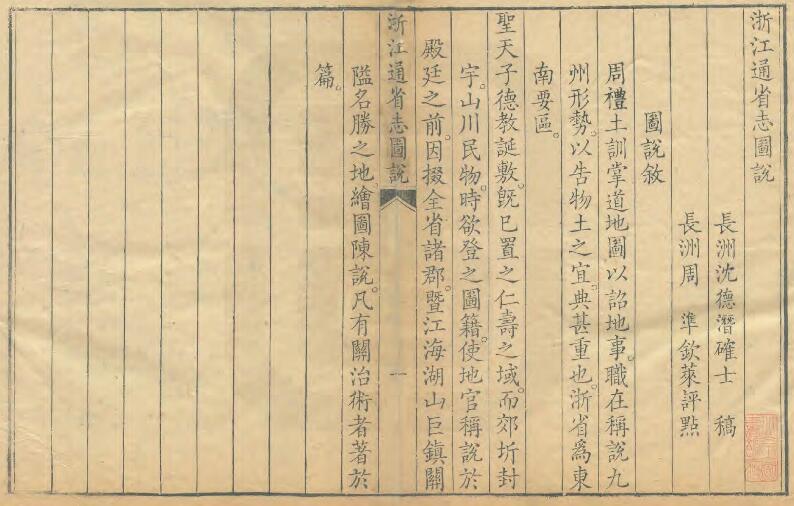 浙江通省志圖說
長洲沈德潛確士 稿
長洲周 準欽萊評點
圖說敘
周禮土訓掌道地圖以詔地事。職在稱說九
州形勢。以告物土之宜。典甚重也。浙省爲東
南要區。
聖天子德教誕敷。旣已置之仁壽之域。而郊圻封
宇。山川民物。時欲登之圖籍。使地官稱說於
殿廷之前。因掇全省諸郡。暨江海湖山巨鎮關
浙江通省志圖說 一
隘名勝之地。繪圖陳說。凡有關治術者著於
篇。